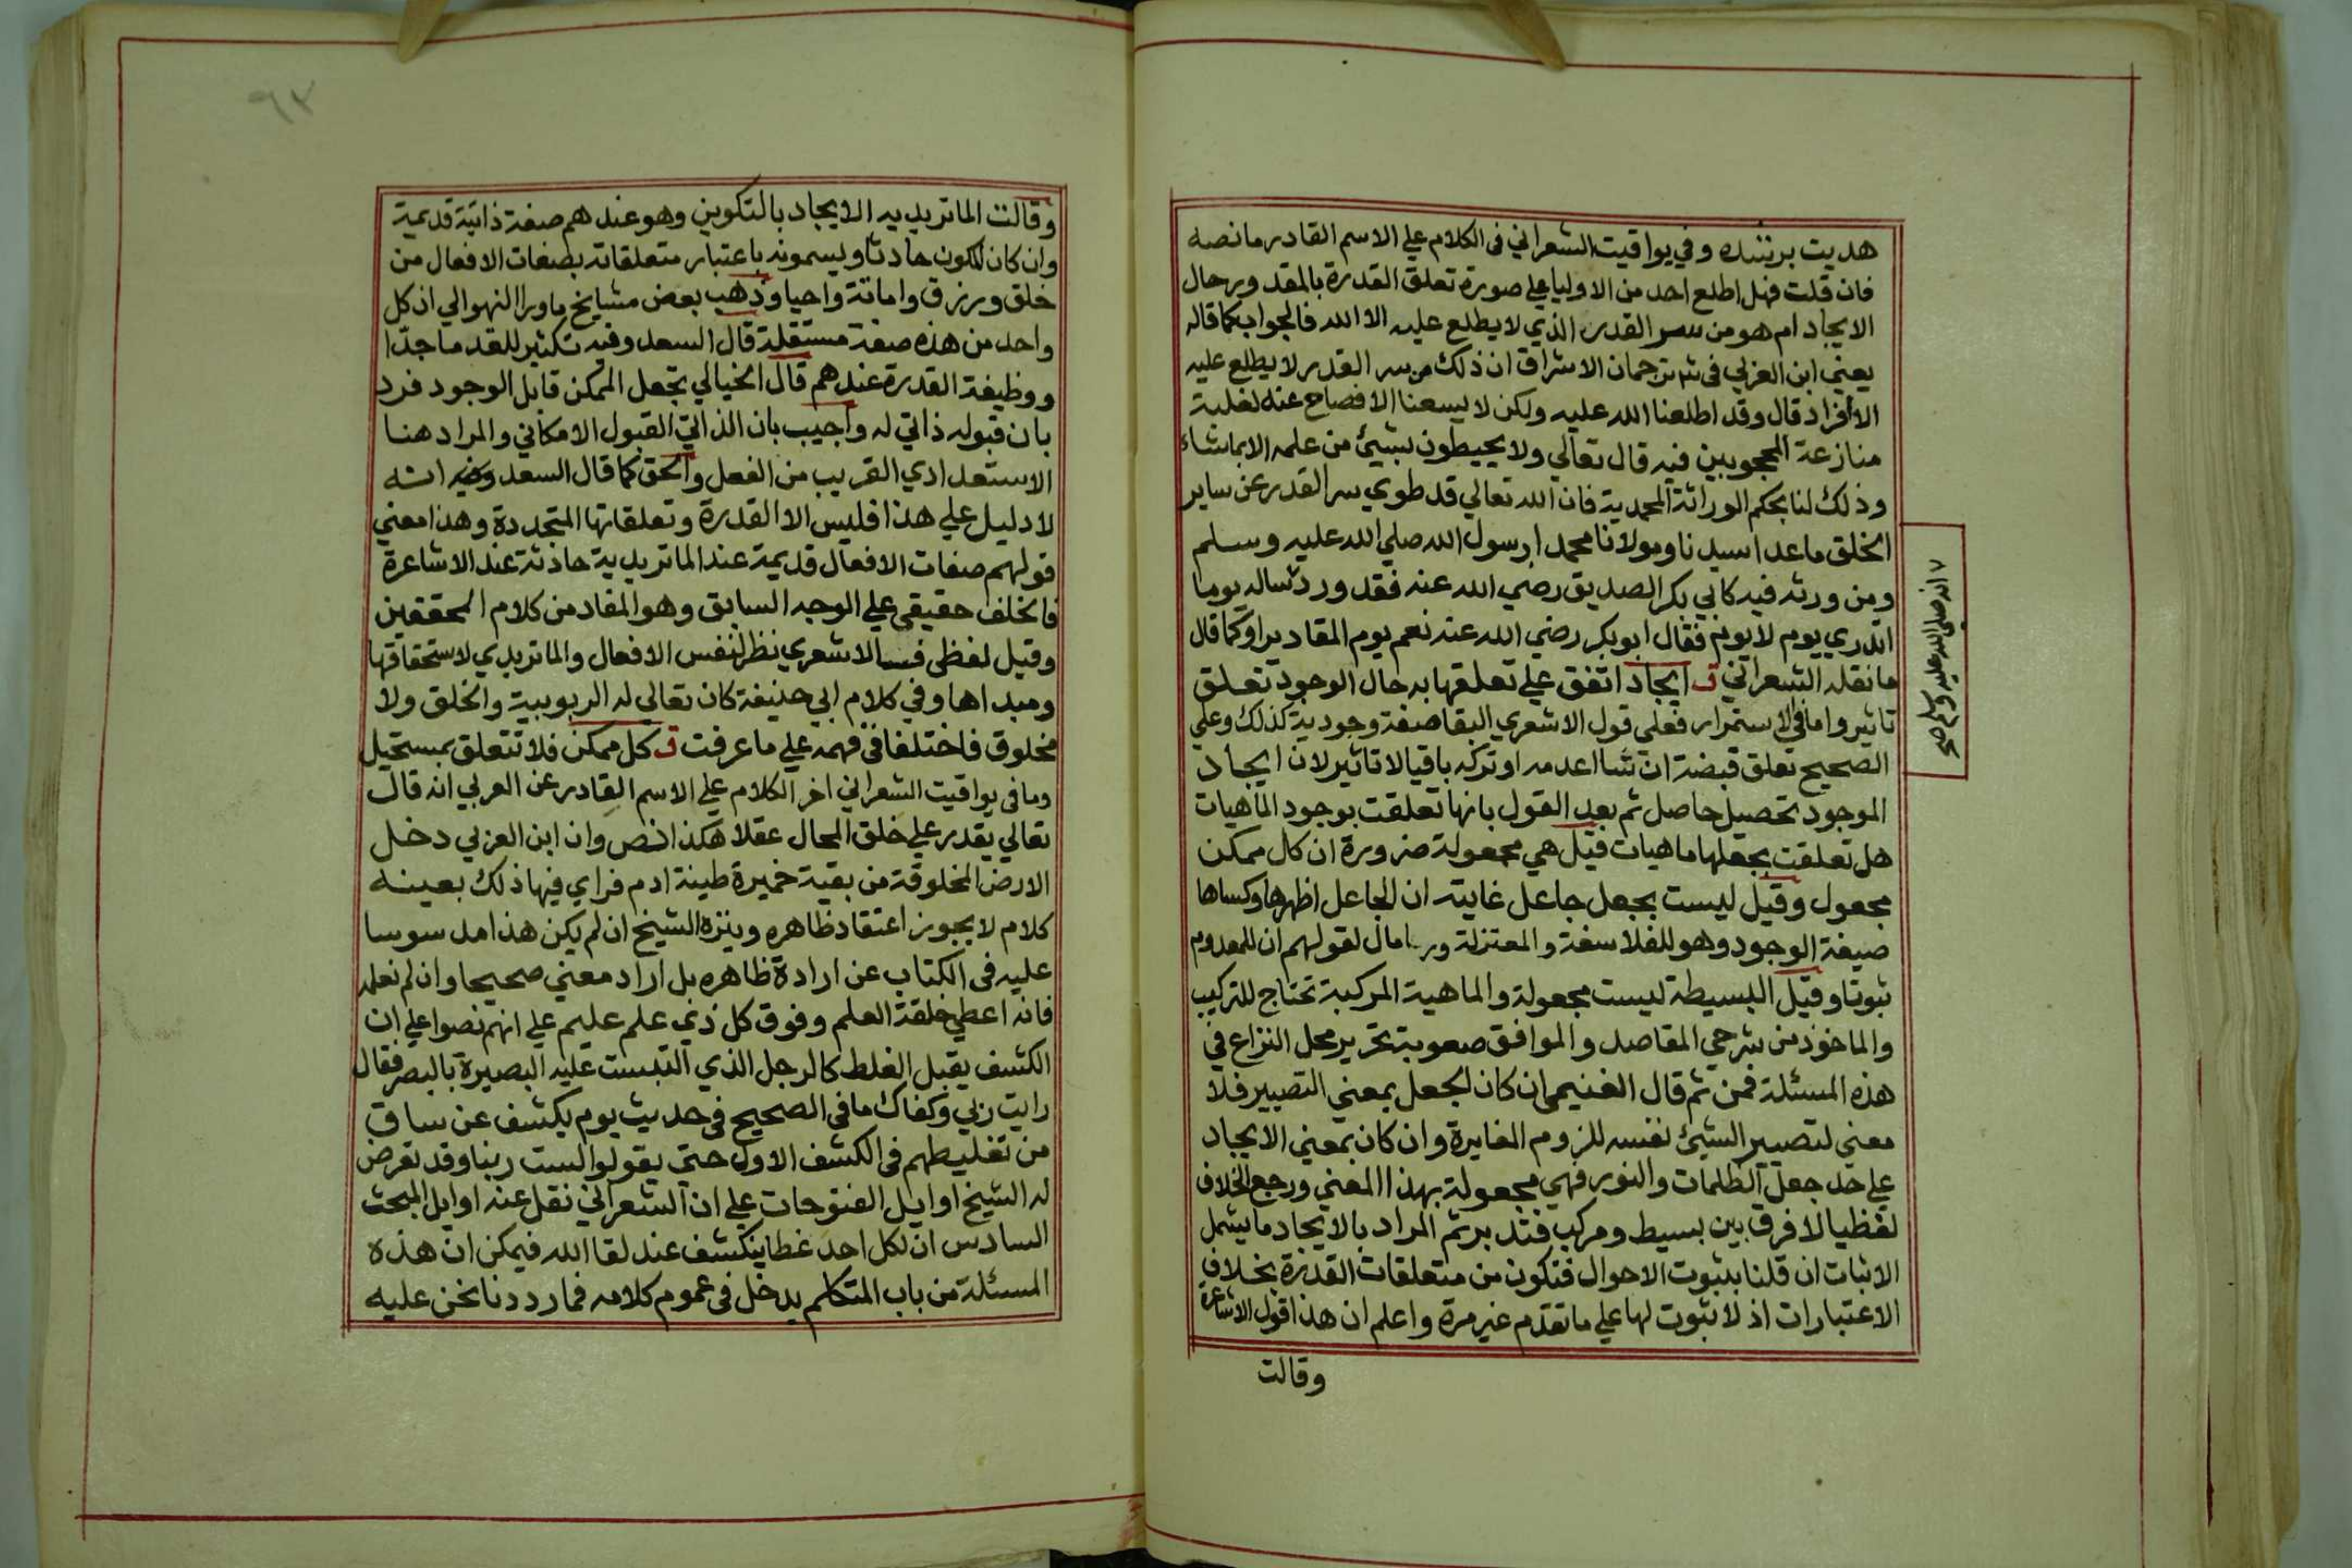 هديت برشده وفي يواقيت الشعراني في الكلام علي الاسم القادر ما نصه
فان قلت فهل اطلع احد من الاوليا علي صورة تعلق القدرة بالمقدور حال
الايجاد ام هو من سر القدر الذي لا يطلع عليه الا الله فالجواب كما قاله
يعني ابن العربي في شرح ترجمان الاشراق ان ذلك من سر القدر لا يطلع عليه
الا افراد قال وقد اطلعنا الله عليه ولكن لا يسعنا الافصاح عنه لغلبة
منازعة المحجوبين فيه قال تعالي ولا يحيطون بشيئ من علمه الا بما شاء
وذلك لنا بحكم الوراثة المحمدية فان الله تعالي قد طوي سر القدر عن ساير
الخلق ما عدا سيدنا ومولانا محمدا رسول الله صلي الله عليه وسلم
ومن ورثه فيه كابي بكر الصديق رضي الله عنه فقد ورد ساله يوما
اتدري يوم لا يوم فقال ابو بكر رضي الله عنه نعم يوم المقادير او كما قال
ما نقله الشعراني ق ايجاد اتفق علي تعلقها به حال الوجود تعلق
تاثير واما في الاستمرار فعلي قول الاشعري البقا صفة وجودية كذلك وعلي
الصحيح تعلق قبضة ان شا اعدمه او تركه باقيا لا تاثير لان ايجاد
الموجود تحصيل حاصل ثم بعد القول بانها تعلقت بوجود الماهيات
هل تعلقت بجعلها ماهيات قيل هي مجعولة ضرورة ان كل ممكن
مجعول وقيل ليست بجعل جاعل غايته ان الجاعل اظهرها وكساها
صيغة الوجود وهو للفلاسفة والمعتزلة وربما مال لقولهم ان للمعدوم
ثبوتا وقيل البسيطة ليست مجعولة والماهية المركبة تحتاج للتركيب
والماخوذ من شرحي المقاصد والمواقف صعوبة تحرير محل النزاع في
هذه المسئلة فمن ثم قال الغنيمي ان كان الجعل بمعني التصيير فلا
معني لتصيير الشيئ نفسه للزوم المغايرة وان كان بمعني الايجاد
علي حد جعل الظلمات والنور فهي مجعولة بهذا المعني ورجع الخلاف
لفظيا لا فرق بين بسيط ومركب فتدبر ثم المراد بالايجاد ما يشمل
الاثبات ان قلنا بثبوت الاحوال فتكون من متعلقات القدرة بخلاف
الاعتبارات اذ لا ثبوت لها علي ما تقدم غير مرة واعلم ان هذا قول الاشاعرة
وقالت
انه صلي الله عليه وسلم صح
٩٣
وقالت الماتريديه الايجاد بالتكوين وهو عندهم صفة ذاتية قديمة
وان كان المكون حادثا ويسمونه باعتبار متعلقاته بصفات الافعال من
خلق ورزق واماتة واحيا وذهب بعض مشايخ ما ورا النهر الي ان كل
واحد من هذه صفة مستقلة قال السعد وفيه تكثير للقدما جدّا
ووظيفة القدرة عندهم قال الخيالي تجعل الممكن قابل الوجود فرد
بان قبوله ذاتي له واجيب بان الذاتي القبول الامكاني والمراد هنا
الاستعدادي القريب من الفعل والحق كما قال السعد وغيره انه
لا دليل علي هذا فليس الا القدرة وتعلقاتها المتجددة وهذا معني
قولهم صفات الافعال قديمة عند الماتريدية حادثة عند الاشاعرة
فالخلف حقيقي علي الوجه السابق وهو المفاد من كلام المحققين
وقيل لفظي فالاشعري نظر لنفس الافعال والماتريدي لاستحقاقها
ومبداها وفي كلام ابي حنيفة كان تعالي له الربوبية والخلق ولا
مخلوق فاختلفا في فهمه علي ما عرفت ق كل ممكن فلا تتعلق بمستحيل
وما في يواقيت الشعراني اخر الكلام علي الاسم القادر عن العربي انه قال
تعالي يقدر علي خلق المحال عقلا هكذا نص وان ابن العربي دخل
الارض المخلوقة من بقية خميرة طينة ادم فراي فيها ذلك بعينه
كلام لا يجوز اعتقاد ظاهره وينزه الشيخ ان لم يكن هذا مدسوسا
عليه في الكتاب عن ارادة ظاهره بل اراد معني صحيحا وان لم نعلمه
فانه اعطي خلقة العلم وفوق كل ذي علم عليم علي انهم نصوا علي ان
الكشف يقبل الغلط كالرجل الذي التبست عليه البصيرة بالبصر فقال
رايت ربي وكفاك ما في الصحيح في حديث يوم يكشف عن ساق
من تغليطهم في الكشف الاول حتي يقولوا لست ربنا وقد تعرض
له الشيخ اوايل الفتوحات علي ان الشعراني نقل عنه اوايل المبحث
السادس ان لكل احد غطا ينكشف عند لقا الله فيمكن ان هذه
المسئلة من باب المتكلم يدخل في عموم كلامه فما رددنا نحن عليه